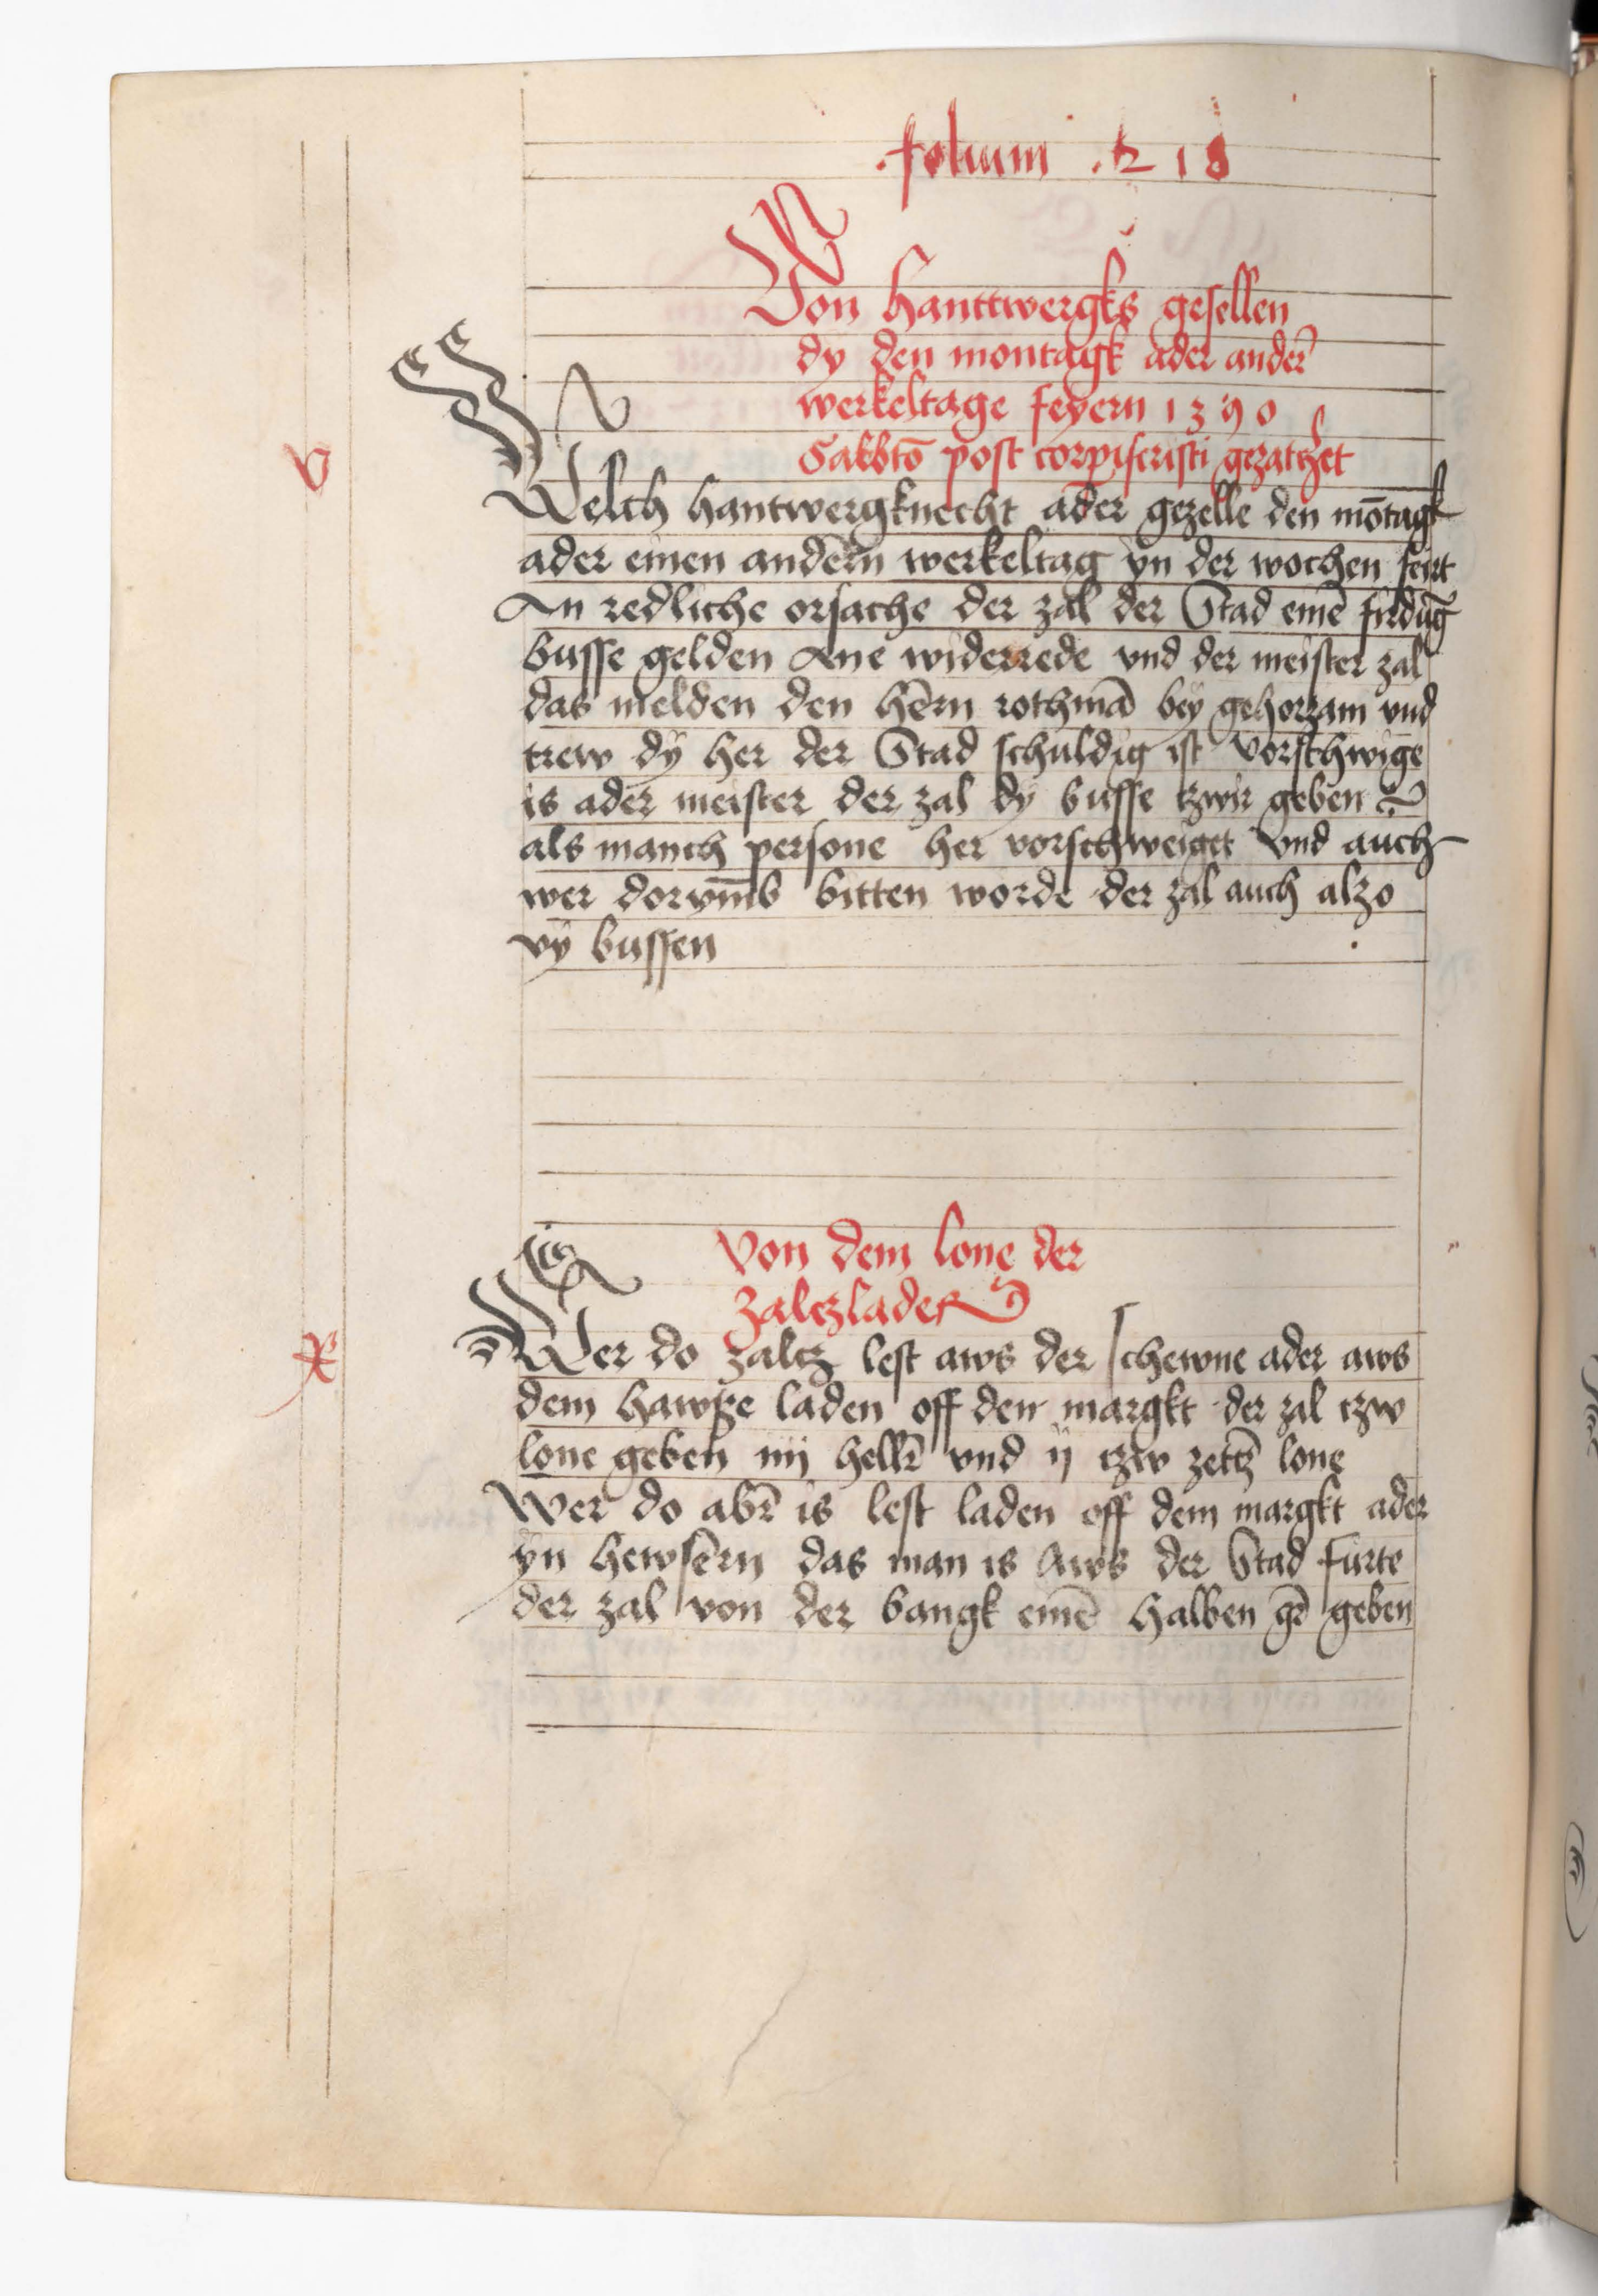 folium . 218
Von hanttwergks gesellen
dy den montagk ader anderẽ
werkeltage feyern 1390
Sabbtõ post corpiscristi gezatczet
v
Welch hantwergknecht ader gezelle den mõtagk
ader einen andern werkeltag yn der wochen feirt
An redliche orsache der zal der Stad einē firdūg
busse gelden Ane widerrede vnd der meister zal
das melden den hērn rothmā bey gehorzam vnd
trew dy her der Stad schuldig ist vorschwige
is ader meister der zal dy busse tzwir geben
als manch persone her vorschweiget vnd auch
wer dorvm̄b bitten worde der zal auch alzo
vÿ bussen
Von dem lone der
Zaltzlader
x
Wer do zaltz lest aws der schewne ader aws
dem hawße laden off den margkt der zal tzw
lone geben iiij hellr̄ vnd ij tzw zettz̄ lone
Wer do abr̄ is lest laden off dem margkt ader
yn hewsern das man is Aws der Stad furte
der zal von der bangk einē halben gr̄ geben